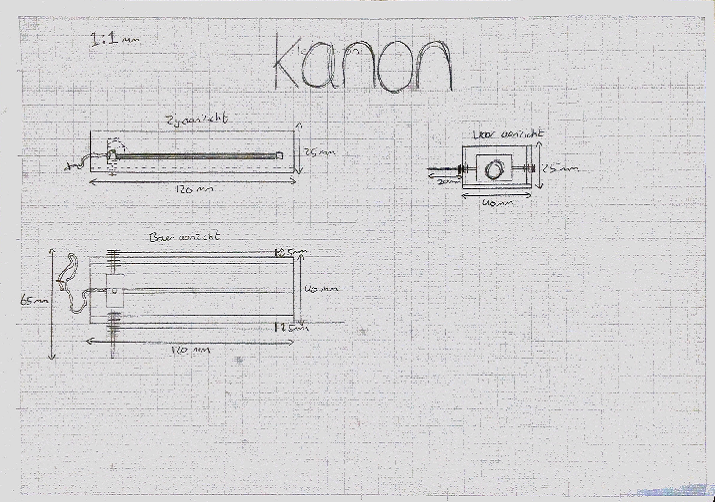 1:1 mm
kanon
Zijaanzicht
25 mm
120 mm
Voor aanzicht
25 mm
20mm
40mm
Boven aanzicht
5mm
65mm
40mm
5mm
120 mm